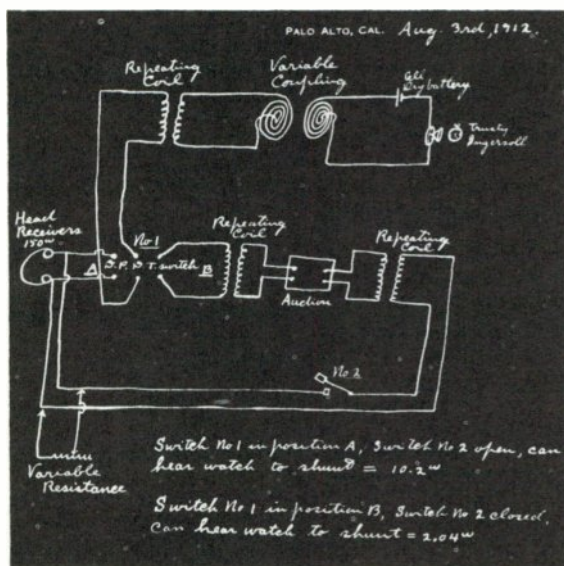 PALO ALTO, CAL. Aug. 3rd, 1912.
Repeating
Coil
Variable
Coupling
Dry battery
Trusty
Ingersoll
Head
Receivers
150ω
No 1
A
S.P.D.T. switch
B
Repeating
Coil
Auction
Repeating
Coil
No 2
Variable
Resistance
Switch No 1 in position A, Switch No 2 open, can
hear watch to shunt = 10.2ω
Switch No 1 in position B, Switch No 2 closed,
Can hear watch to shunt = 2.04ω